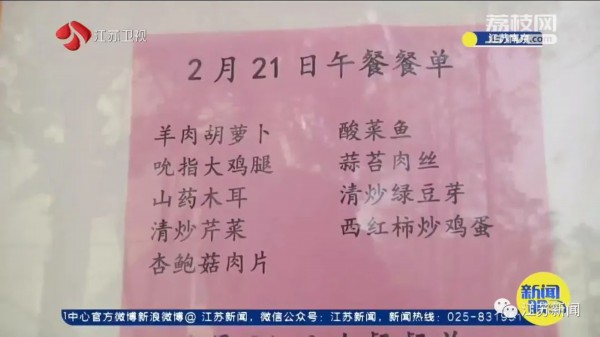 江苏卫视
荔枝网
2月21日午餐餐单
羊肉胡萝卜
酸菜鱼
吮指大鸡腿
蒜苔肉丝
山药木耳
清炒绿豆芽
清炒芹菜
西红柿炒鸡蛋
杏鲍菇肉片
新闻
江苏新闻
中心官方微博新浪微博@ 江苏新闻，微信公众号：江苏新闻，新闻热线：025-831951